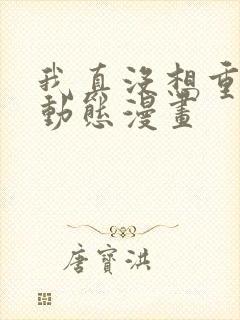 我真沒想重
動態漫畫
唐寶洪